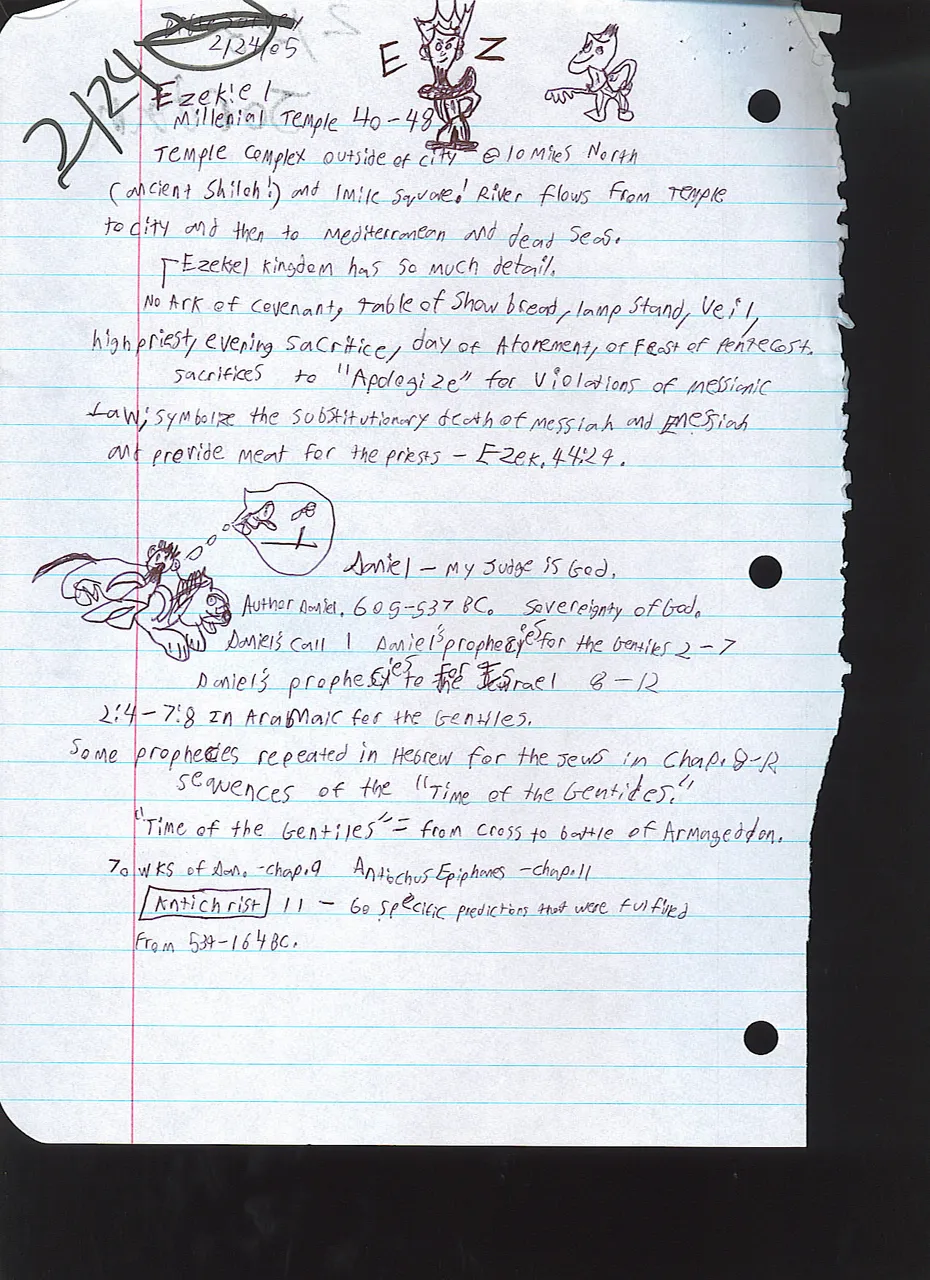 2/24/05
2/24
E Z
Ezekiel
Millenial Temple 40-48
Temple complex outside of city @ 10 miles North
(ancient Shiloh!) and 1 mile square! River flows from Temple
to city and then to Mediterranean and dead seas.
Ezekiel kingdom has so much detail.
No Ark of covenant, table of Show bread, lamp stand, Veil,
high priest, evening sacrifice, day of Atonement, or Feast of Pentecost.
sacrifices to "Apologize" for Violations of messianic
Law; symbolize the substitutionary death of messiah and messiah
and provide meat for the priests - Ezek. 44:29.
Daniel - my Judge is God.
Author Daniel. 605-537 BC. Sovereignty of God.
Daniel's Call 1 Daniel's prophecies for the Gentiles 2-7
Daniel's prophecies for Israel 8-12
2:4-7:8 In Aramaic for the Gentiles.
Some prophecies repeated in Hebrew for the Jews in Chap. 8-12
sequences of the "Time of the Gentiles."
"Time of the Gentiles" = from cross to battle of Armageddon.
70 WKS of Dan. -chap. 9 Antiochus Epiphanes -chap. 11
Antichrist 11 - 60 specific predictions that were fulfilled
From 539-164 BC.